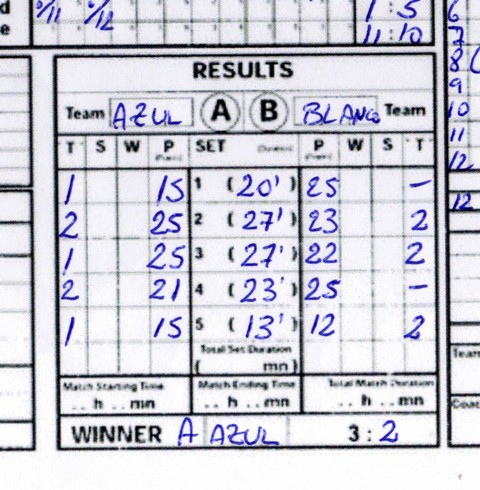 d
e
0/11 0/12
1 : 5
11 : 10
6
7
8 (
9
10
11
12
12
RESULTS
Team AZUL A B BLANCO Team
T S W P SET (Duration) P W S T
1 15 1 (20') 25 -
2 25 2 (27') 23 2
1 25 3 (27') 22 2
2 21 4 (23') 25 -
1 15 5 (13') 12 2
Total Set Duration
( mn)
Match Starting Time Match Ending Time Total Match Duration
.. h .. mn .. h .. mn .. h .. mn
WINNER A AZUL 3 : 2
Team
Coac